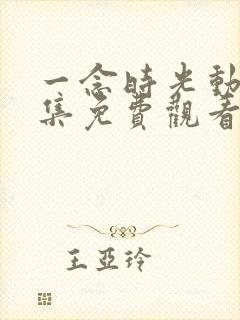 一念時光動
集免費觀看
王亞玲